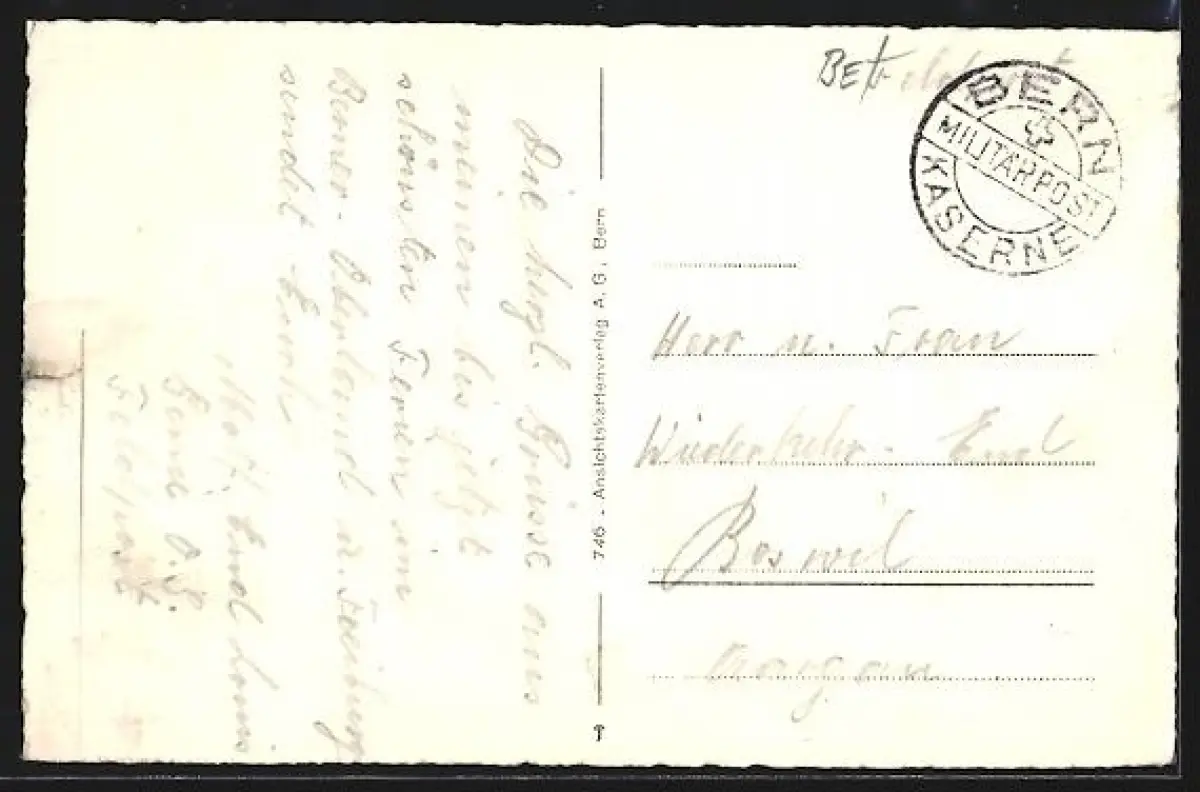 Die herzl. Grüsse aus
meinen bis jetzt
schönsten Ferien im
Berner-Oberland u. Freiburg
sendet Euch
Louis
Feldpost
746 - Ansichtskartenverlag A.G., Bern
BERN
MILITÄRPOST
KASERNE
Herr u. Frau
Wiederkehr - 
Boswil
Aargau